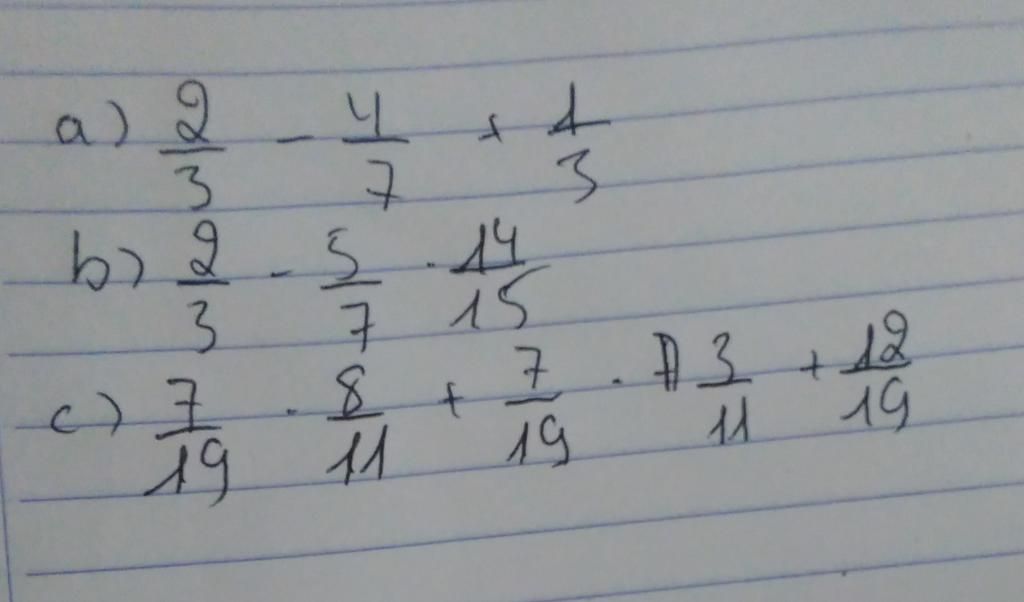 a) 2/3 - 4/7 + 1/3
b) 2/3 - 5/7 . 14/15
c) 7/19 . 8/11 + 7/19 . 3/11 + 12/19